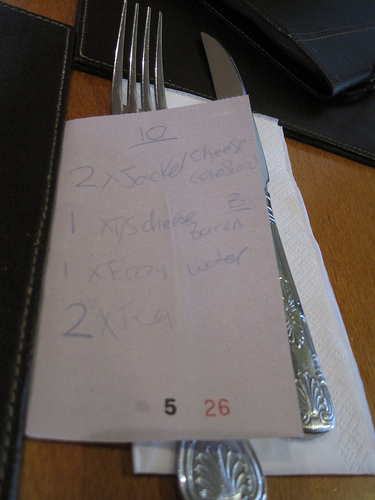 10
2 x Jacket Cheese
coleslaw
1 x T/S cheese B
Bacon
1 x Fizzy water
2 x Tea
5 26